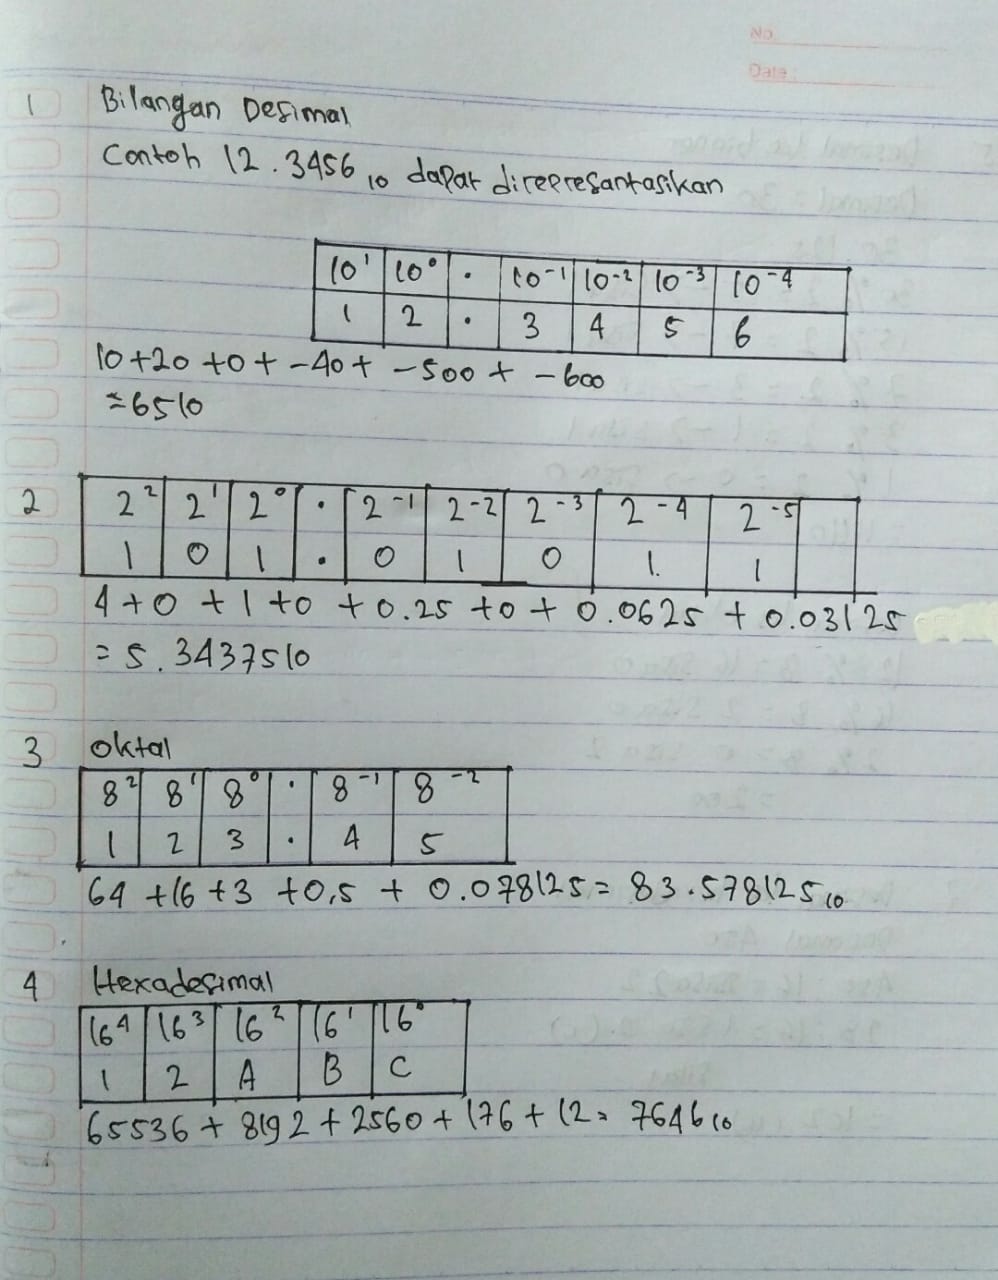 No.
Date :
1 Bilangan Desimal
Contoh 12.3456 10 dapat direpresantasikan
10¹ 10⁰ . 10⁻¹ 10⁻² 10⁻³ 10⁻⁴
1 2 . 3 4 5 6
10+20+0+-40+-500+-600
=6510
2 2² 2¹ 2⁰ . 2⁻¹ 2⁻² 2⁻³ 2⁻⁴ 2⁻⁵
1 0 1 . 0 1 0 1. 1
4+0+1+0+0.25+0+0.0625+0.03125
=5.3437510
3 Oktal
8² 8¹ 8⁰ . 8⁻¹ 8⁻²
1 2 3 . 4 5
64+16+3+0,5+0.078125=83.578125 10
4 Hexadesimal
16⁴ 16³ 16² 16¹ 16⁰
1 2 A B C
65536+8192+2560+176+12=7646 10